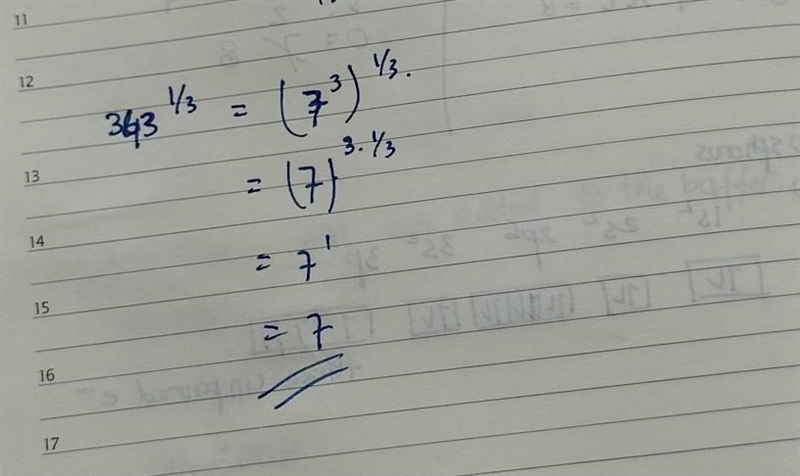 11
12
343^1/3 = (7^3)^1/3.
13
= (7)^3·1/3
14
= 7^1
15
= 7
16
17